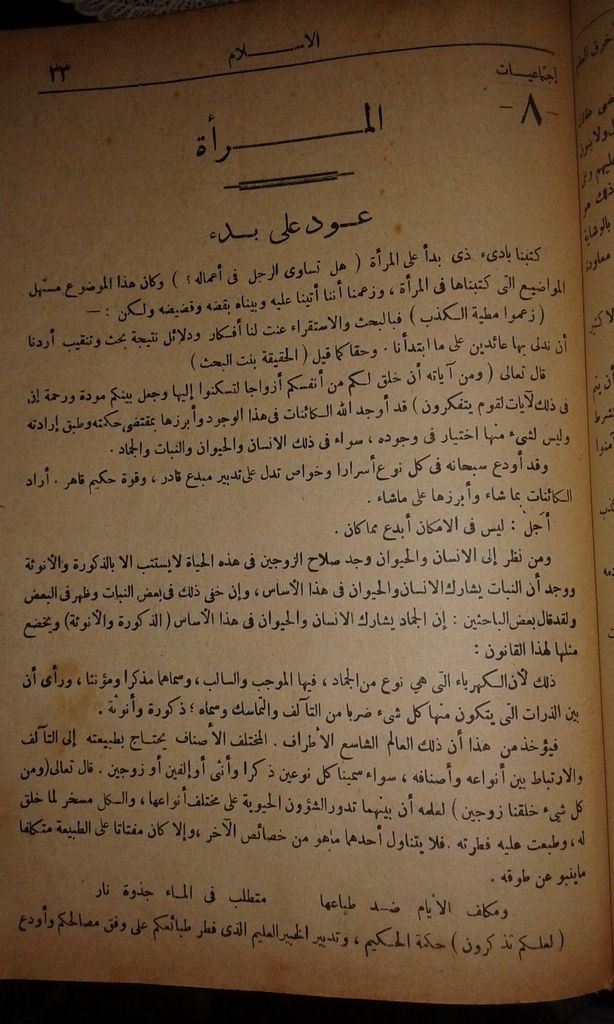 الاســـلام
٣٣
إجتماعيـات
-٨-
المـــرأة
عـود على بـدء
كتبنا بادىء ذى بدأ على المرأة ( هل تساوى الرجل فى أعماله ؟ ) وكان هذا الموضوع مستهل
المواضيع التى كتبناها فى المرأة ، وزعمنا أننا أتينا عليه وبيناه بقضه وقضيضه ولكن : —
( زعموا مطية الكذب ) فبالبحث والاستقراء عنت لنا أفكار ودلائل نتيجة بحث وتنقيب أردنا
أن ندلى بها عائدين على ما ابتدأنا . وحقا كما قيل ( الحقيقة بنت البحث )
قال تعالى ( ومن آياته أن خلق لكم من أنفسكم أزواجا لتسكنوا إليها وجعل بينكم مودة ورحمة إن
فى ذلك لآيات لقوم يتفكرون ) قد أوجد الله الكائنات فى هذا الوجود وأبرزها بمقتضى حكمته وطبق إرادته
وليس لشىء منها اختيار فى وجوده ، سواء فى ذلك الانسان والحيوان والنبات والجماد .
وقد أودع سبحانه فى كل نوع أسرارا وخواص تدل على تدبير مبدع قادر ، وقوة حكيم قاهر . أراد
الكائنات بما شاء وأبرزها على ماشاء .
أجل : ليس فى الامكان أبدع مما كان .
ومن نظر إلى الانسان والحيوان وجد صلاح الزوجين فى هذه الحياة لايستتب الا بالذكورة والأنوثة
ووجد أن النبات يشارك الانسان والحيوان فى هذا الأساس ، وإن خفى ذلك فى بعض النبات وظهر فى البعض
ولقد قال بعض الباحثين : إن الجماد يشارك الانسان والحيوان فى هذا الأساس ( الذكورة والأنوثة) ويخضع
مثلها لهذا القانون :
ذلك لأن الكهرباء التى هي نوع من الجماد ، فيها الموجب والسالب ، وسماهما مذكرا ومؤنثا ، ورأى أن
بين الذرات التى يتكون منها كل شىء ضربا من التآلف والتماسك وسماه ؛ ذكورة وأنوثة .
فيؤخذ من هذا أن ذلك العالم الشاسع الأطراف . المختلف الأصناف يحتاج بطبيعته إلى التآلف
والارتباط بين أنواعه وأصنافه ، سواء سمينا كل نوعين ذكرا وأنثى أو إلفين أو زوجين . قال تعالى (ومن
كل شىء خلقنا زوجين ) لعلمه أن بينهما تدور الشؤون الحيوية على مختلف أنواعها ، والكل مسخر لما خلق
له ، وطبعت عليه فطرته . فلا يتناول أحدهما ماهو من خصائص الآخر ، وإلا كان مفتاتا على الطبيعة متكلفا
ماينبو عن طوقه .
ومكلف الأيام ضـد طباعها متطلب فى المـاء جذوة نار
( لعلـكم تذكرون ) حكمة الحـكيم ، وتدبير الخبير العليم الذى فطر طبائعكم على وفق مصالحكم وأودع